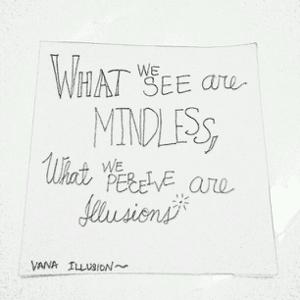 WHAT WE SEE are
MINDLESS,
What WE PERCEIVE are
Illusions
VANA ILLUSION~